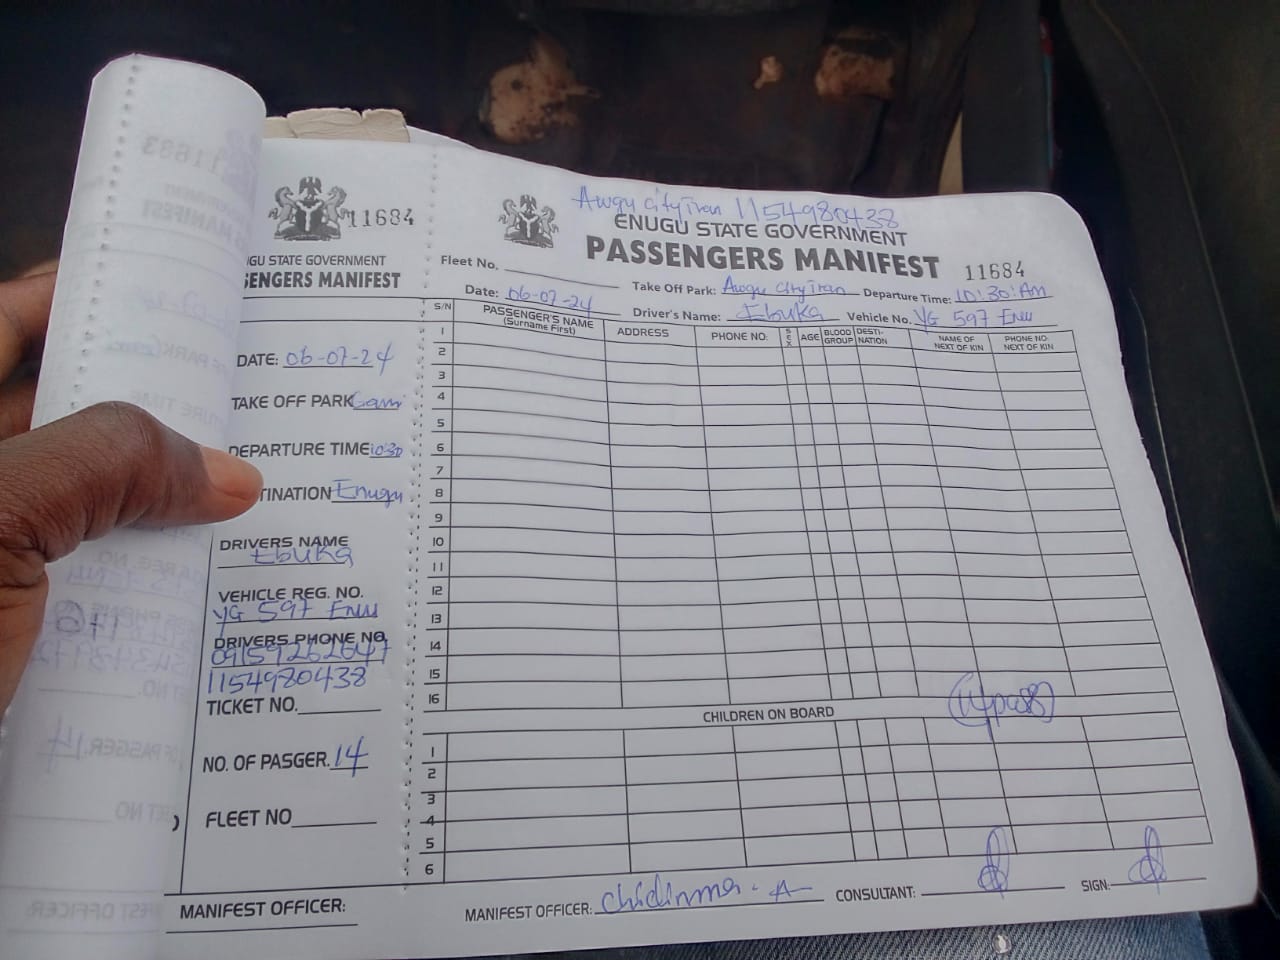 11684
GU STATE GOVERNMENT
SENGERS MANIFEST
DATE: 06-07-24
TAKE OFF PARK
DEPARTURE TIME 10:30
TINATION Enugu
DRIVERS NAME
Ebuka
VEHICLE REG. NO.
YG 597 Enu
DRIVERS PHONE NO
09159262647
1154980438
TICKET NO.
NO. OF PASGER. 14
FLEET NO
MANIFEST OFFICER:
Awgu city tran 1154980438
ENUGU STATE GOVERNMENT
PASSENGERS MANIFEST
11684
Fleet No.
Take Off Park: Awgu City tran Departure Time: 10:30:AM
Date: 06-07-24 Driver's Name: Ebuka Vehicle No. YG 597 Enu
S/N PASSENGER'S NAME (Surname First) ADDRESS PHONE NO: SEX AGE BLOOD GROUP DESTI-NATION NAME OF NEXT OF KIN PHONE NO: NEXT OF KIN
1
2
3
4
5
6
7
8
9
10
11
12
13
14
15
16
CHILDREN ON BOARD
1
2
3
4
5
6
MANIFEST OFFICER: Chidinma . A CONSULTANT: SIGN: